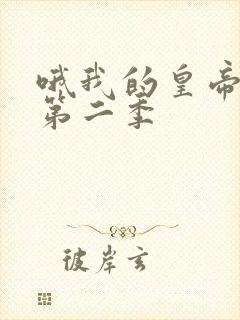 哦我的皇帝
第二季
彼岸玄